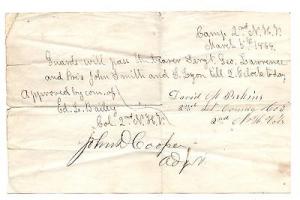 Camp 2nd N.H.V.
March 5th 1864.
Guards will pass the bearer Sergt. Geo. Lawrence
and Pvts John Smith and E. Lyon till 2 o'clock today
Approved by com. of
Ed. L. Bailey
Col. 2nd N.H.V.
David A. Perkins
2nd Lt. Comdg Co
2nd N.H. Vols
John D. Cooper
Adjt.